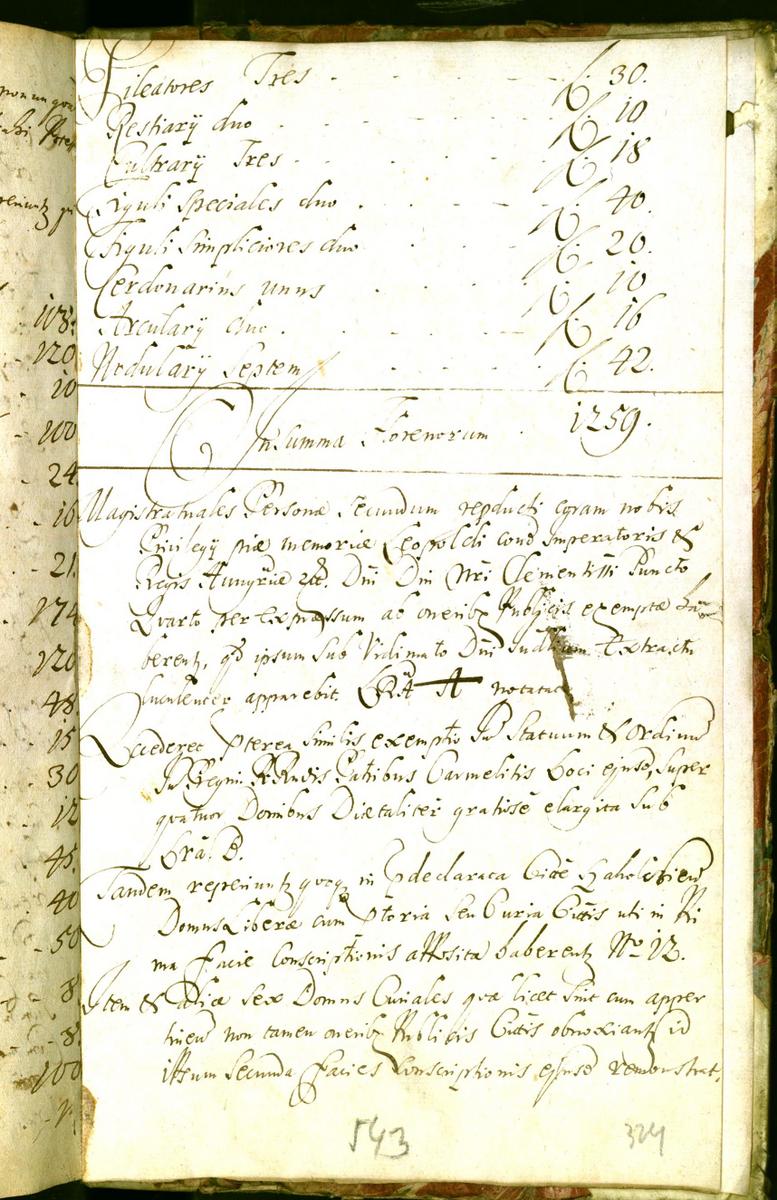 Pileatores Tres . - - - f. 30.
Restiarÿ duo . - - - f. 10
Cultrarÿ Tres . - - - f. 18
Figuli Speciales duo . - - f. 40.
Figuli Simpliciores duo . - - f. 20.
Cerdonarius unus . - - f. 10
Arcularÿ duo . - - - f. 16
Nodularÿ Septem . - - f. 42.
In Summa Florenorum . 1259.
Magistratuales Personæ Secundum
Privilegÿ piæ memoriæ Leopoldi Imperatoris &
Regis Hungariæ Dni Dni Nri Clementissi Puncto
Quarto per Expressum ab onerib9 Publicis exemptæ
berent, qd ipsum Sub Vidimato Dni Extractu
luculenter apparebit. A notatae
Accederet pterea Similis exemptio Statuum & Ordinum
Regni Patribus Carmelitis loci ejusd, super
quatuor Domibus Diætaliter gratiose elargita Sub
Lrâ. B.
Tandem reperiuntr quoq in pdeclarata Citte
Domus Liberæ cum Ptoria Seu Curia Cittis uti in Pri
ma Facie Conscriptionis apposita haberentr No 12.
Item & aliæ Sex Domus Curiales quæ licet Sint cum apper
tinen non tamen onerib9 Publicis Cittis obnoxiantr id
ipsum Secunda Facies Conscriptionis ejusd remonstrat.
543
324
113.
120
10
100
24
16
21
174
120
48
15
30
12
45.
40
50
8
8.
100